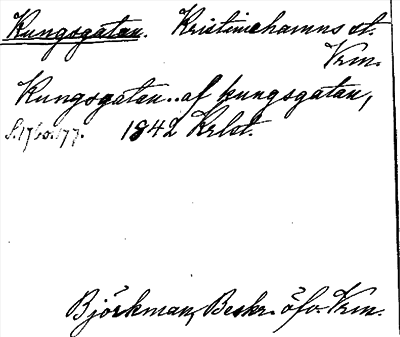 Kungsgatan. Kristinehamns st.
Vrm.
Kungsgatan.. af kungsgatan,
s. 176 o. 177. 1842 Krlst.
Björkman, Beskr. öfv. Vrm.